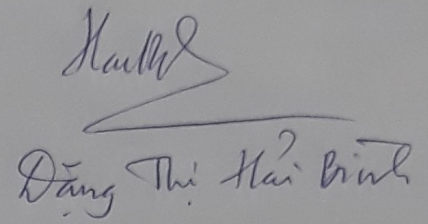 Đặng Thị Hải Bình